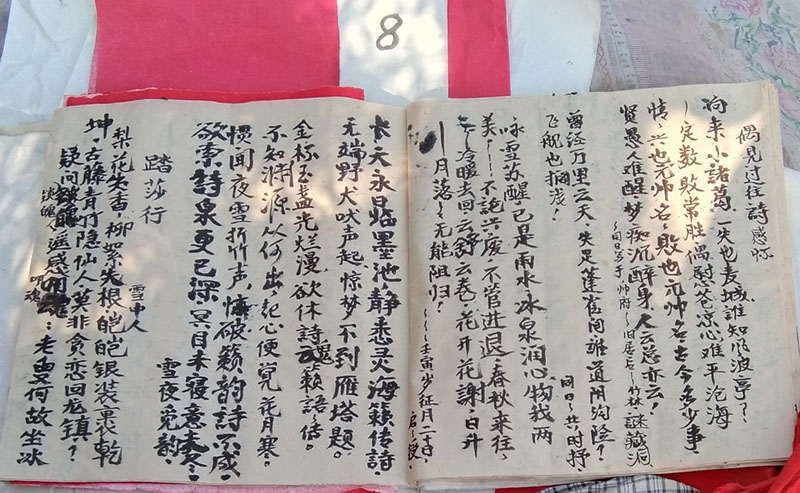 8
偶見过往詩感怀
向来小諸葛，一失也麦城，誰知风波亭？
～定数敗常胜，偶慰苍凉心难平沧海
情，兴也元帅名，敗也元帅名古今多少事
賢愚人难醒，梦痴沉醉身，人云总亦云！
～旧居名～竹林謎藏洞
曾经万里云天，失足蓬雀间誰道阴沟险？
同日～共～时抒
飞舰也搁浅！
咏雪苏醒已是雨水，冰泉润心，物我两
美，～～不説兴废，不管进退，春秋来往，
～冷暖去回，云舒云卷，花开花謝，日升
～月落～无能阻归！
～～～壬寅岁征月二十日，
长天永日臨墨池，静悉灵海籁传詩，
无端野犬吠声起，惊梦不到雁塔题。
金标玉盏光烂漫，欲休詩魂籁語传。
不知渊源从何出，起心便觉花月寒。
惯闻夜雪折竹声，破籁韵詩不成，
欲索詩泉更已深，冥目未寝意未冬。
雪夜觅韵
踏莎行
雪中人
梨花失香，柳絮失根，皑皑银装裹乾
坤，古藤青竹隐仙人莫非贪恋回龙鎮？
疑问遥感：老叟何故坐冰